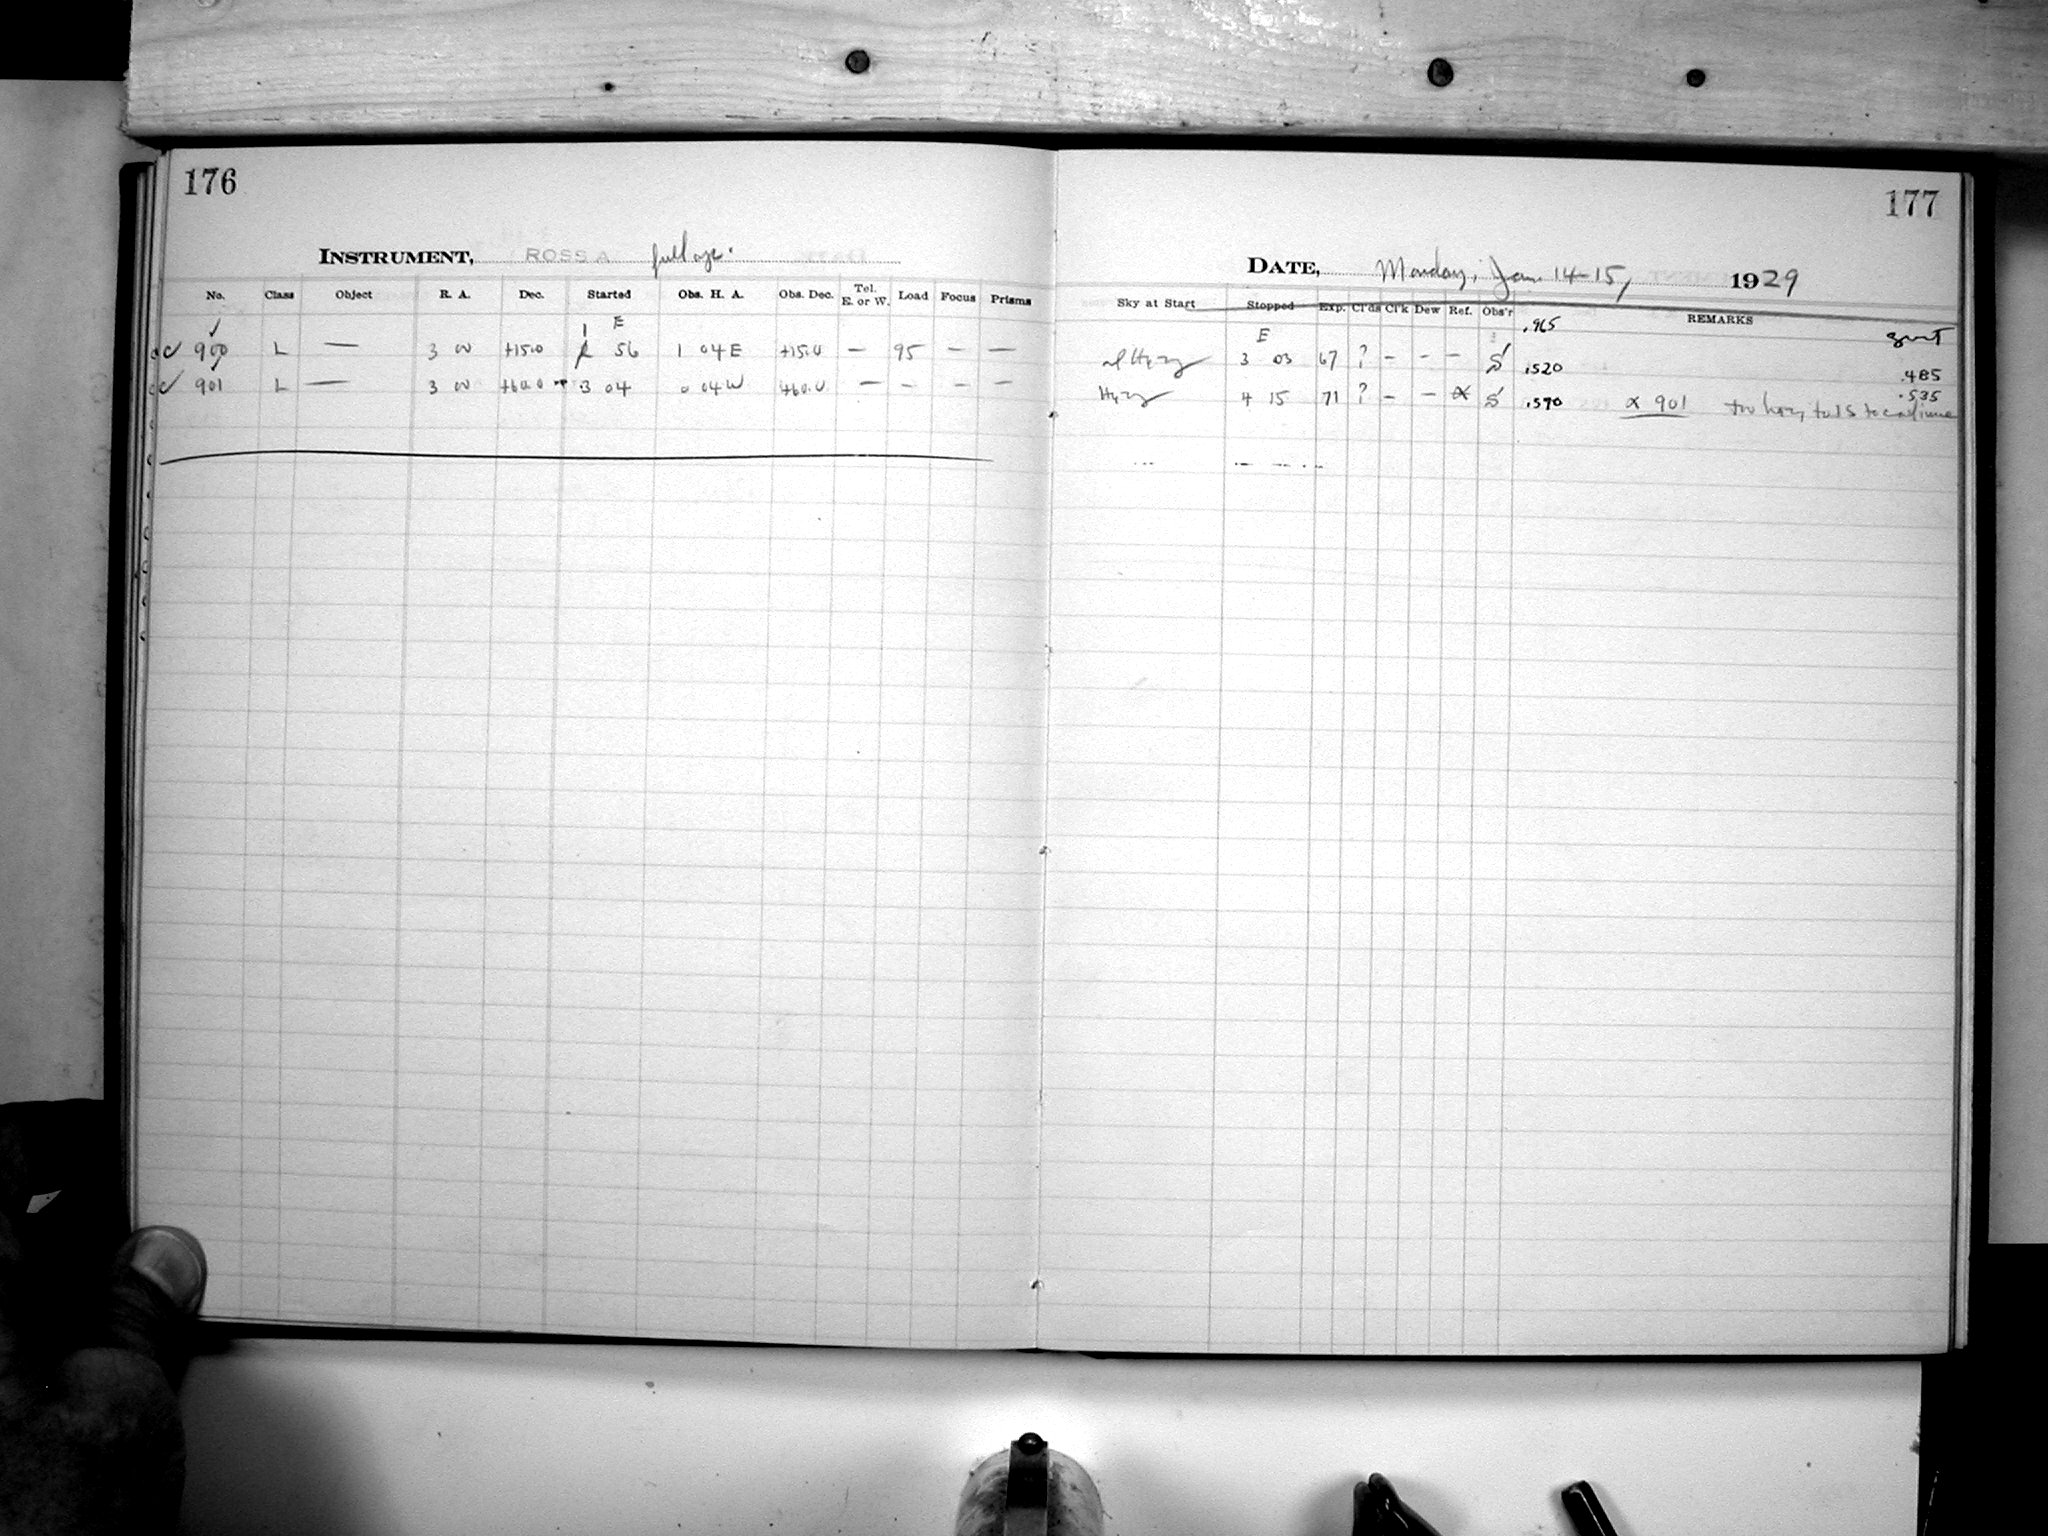 176
INSTRUMENT, ROSS A full ap.
No. Class Object R. A. Dec. Started Obs. H. A. Obs. Dec. Tel. E. or W. Load Focus Prisms
1 E
900 L — 3 00 +15.0 56 1 04 E +15.0 — 95 — —
901 L — 3 00 +60.0 3 04 0 04 W +60.0 — – – –
177
DATE, Monday, Jan 14-15, 1929
Sky at Start Stopped Exp. Cl'ds Cl'k Dew Ref. Obs'r REMARKS
E .965
Hazy 3 03 67 ? – – – S .520 .485
Hazy 4 15 71 ? – – α S .570 α 901 too hazy to continue .535